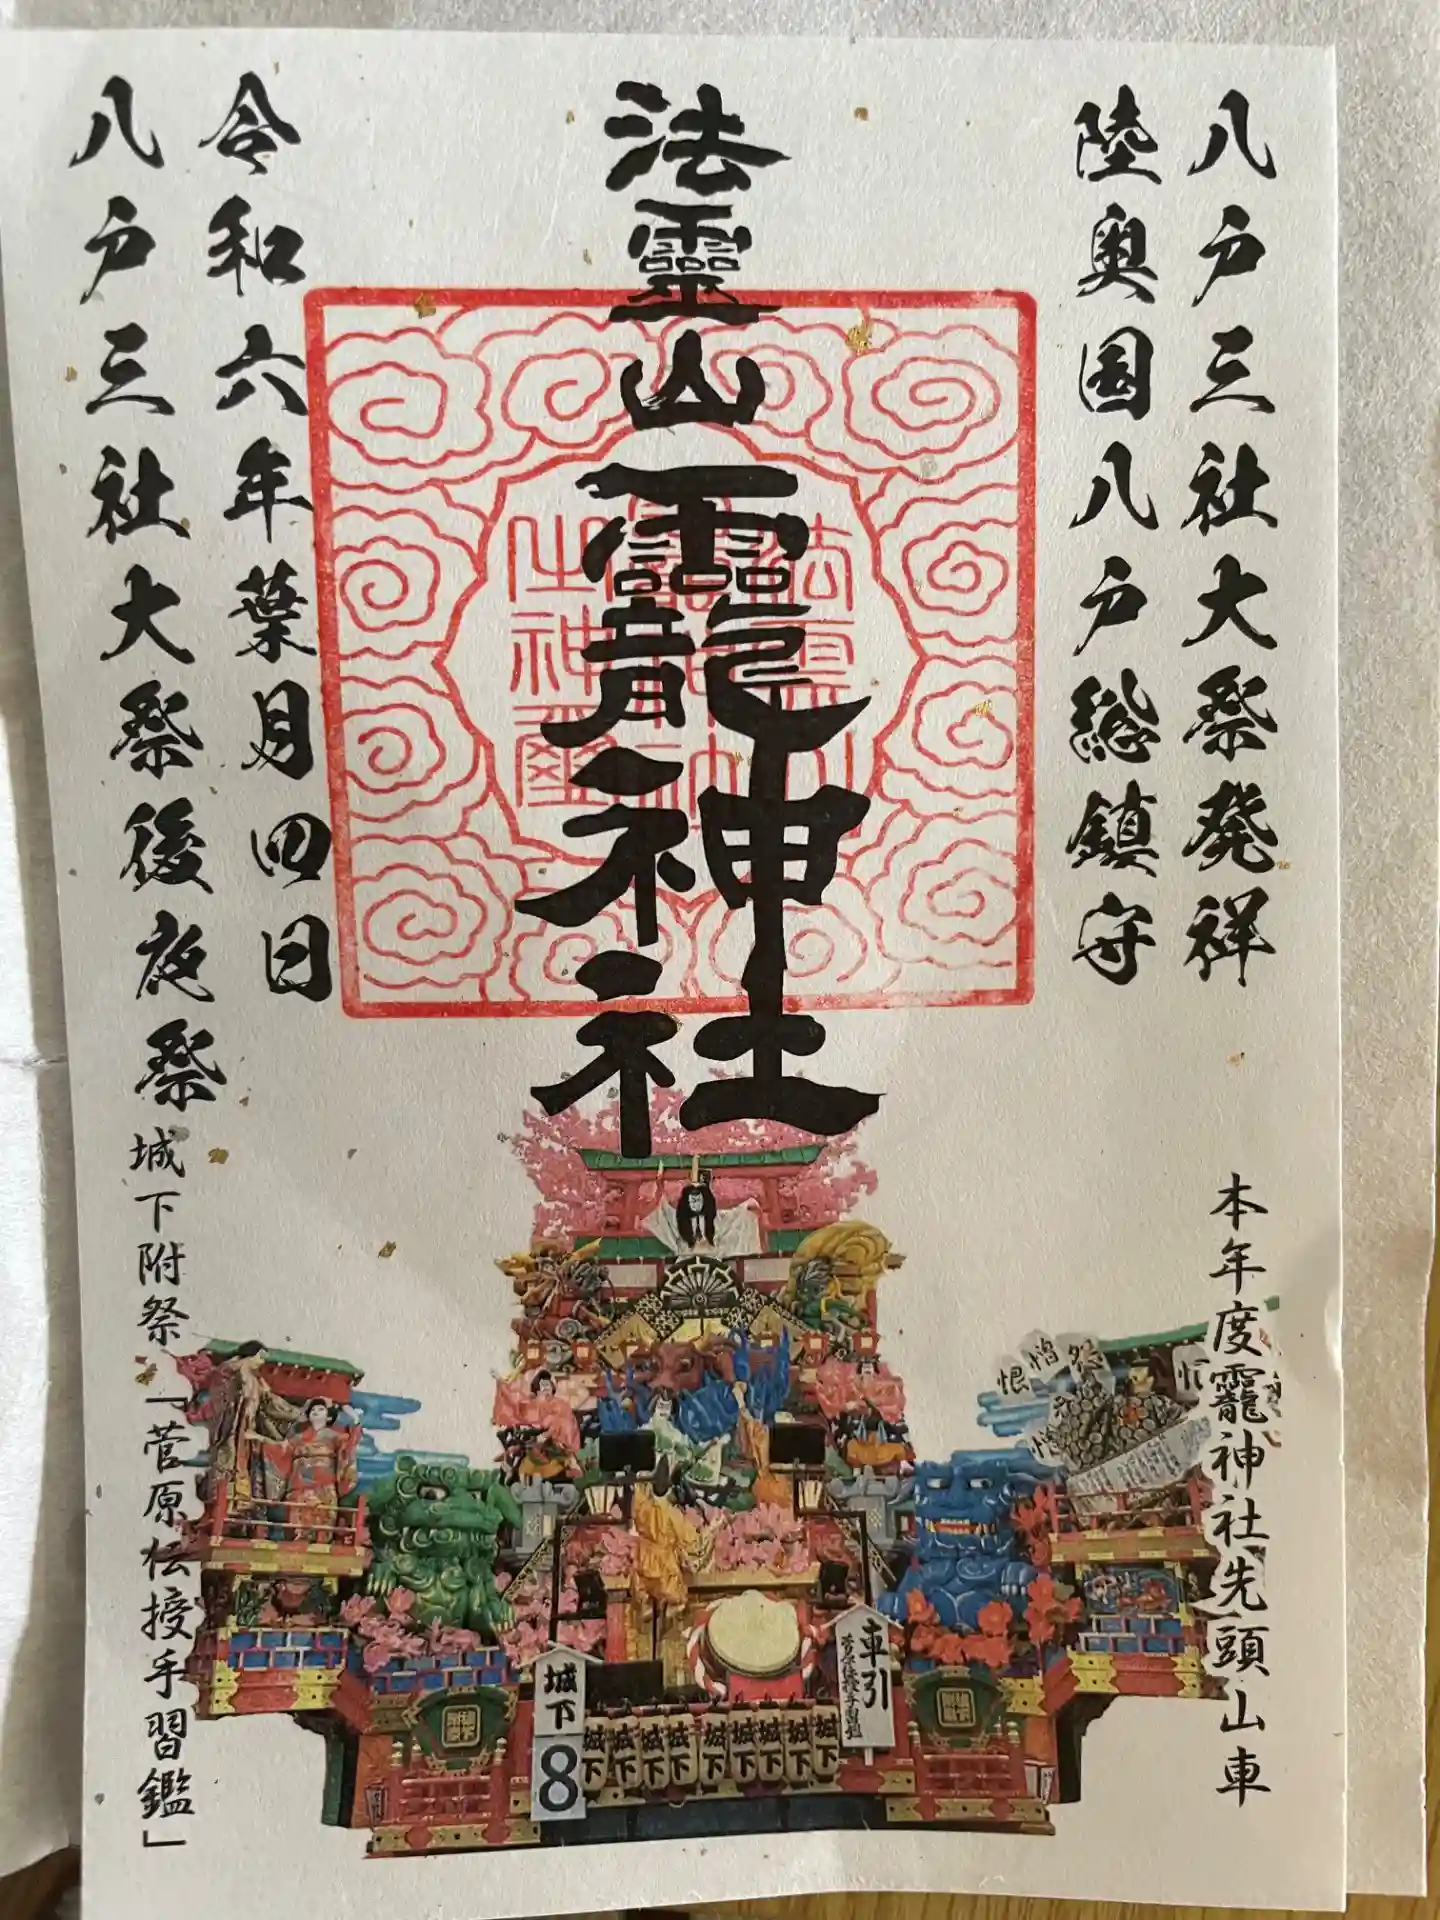 八戸三社大祭発祥
陸奥国八戸総鎮守
法靈山龗神社
令和六年葉月四日
八戸三社大祭後夜祭
本年度龗神社先頭山車
城下附祭「菅原伝授手習鑑」
恨
憎
怨
憎
車引
菅原伝授手習鑑
城下
8
城下
城下
城下
城下
城下
城下
城下
城下
城下